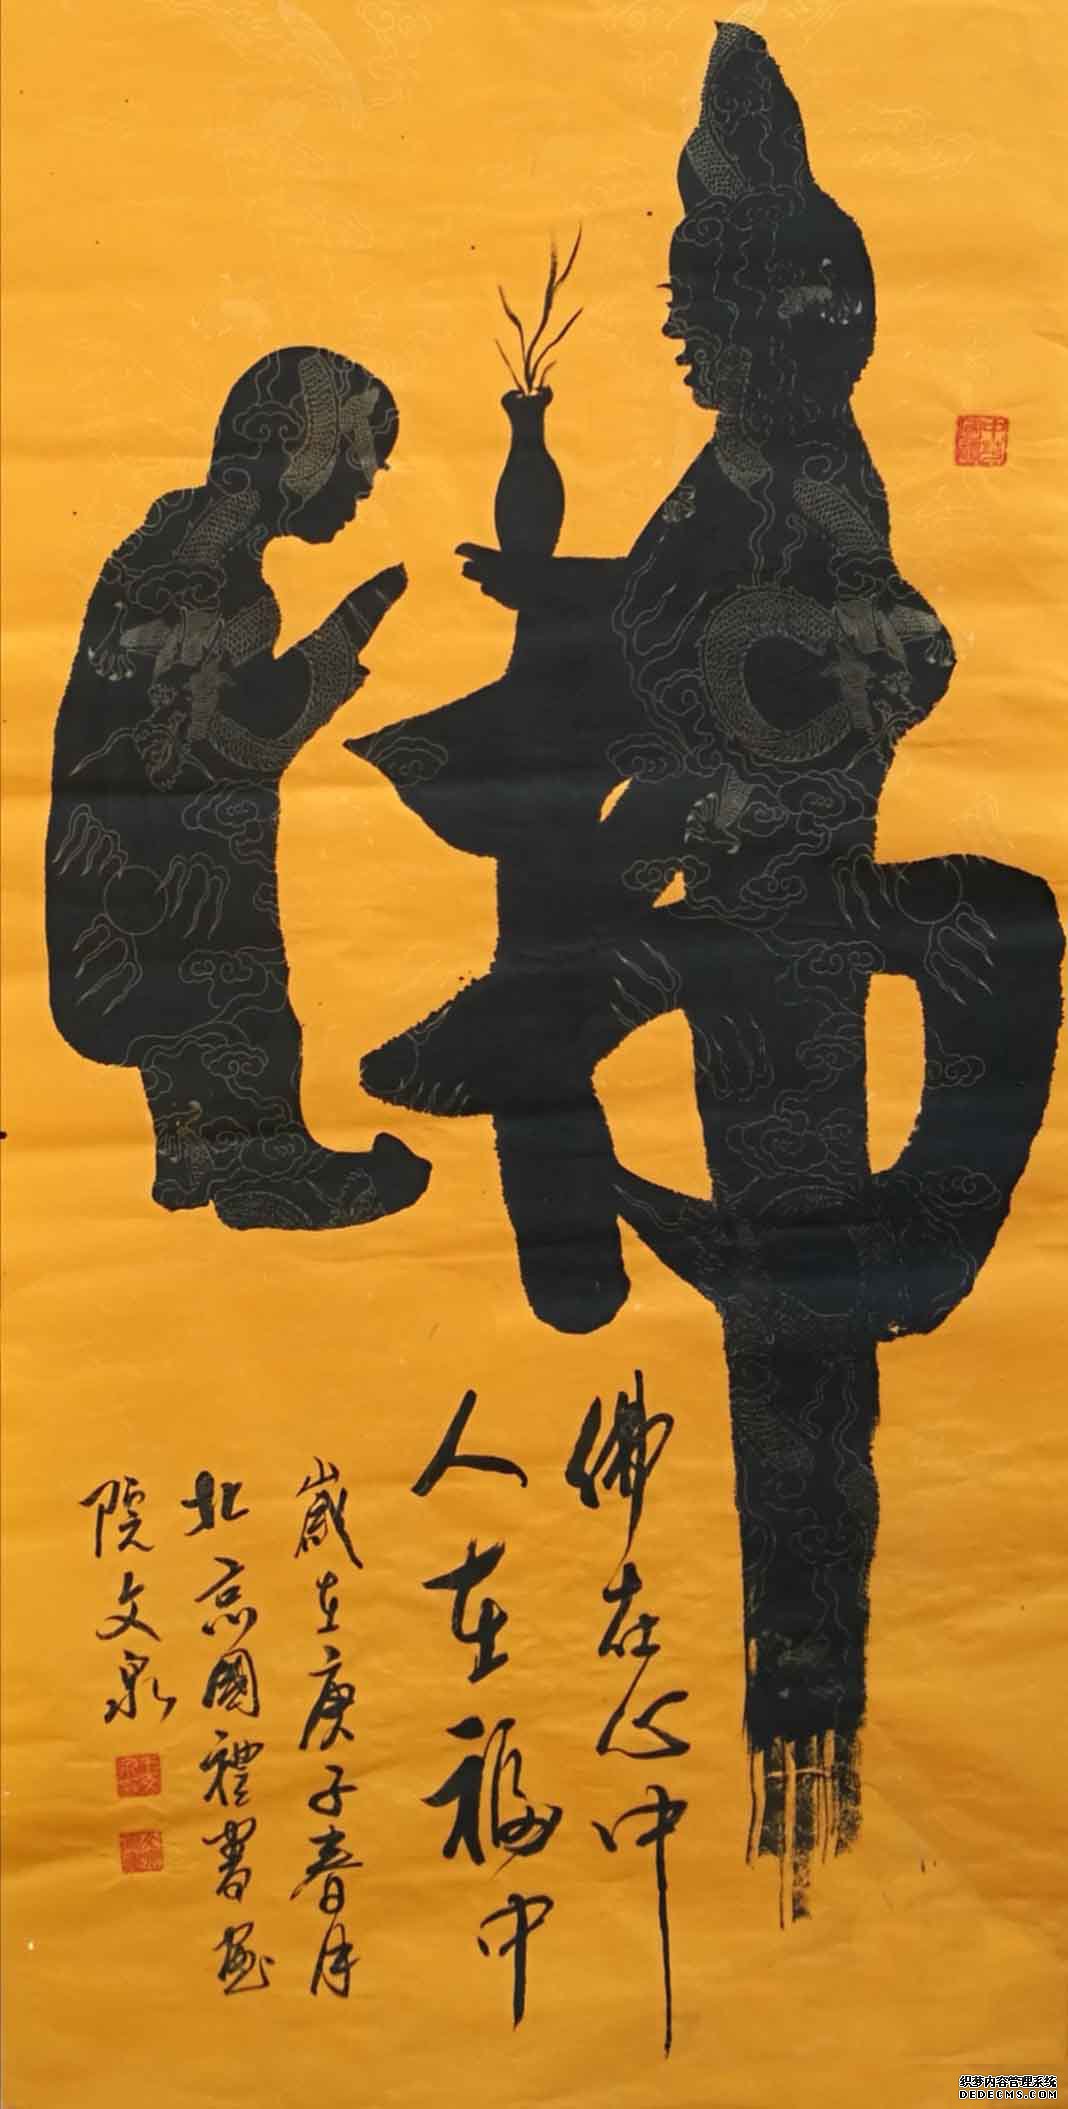 佛在心中
人在福中
歲在庚子春月
北京國禮書画
院文泉
织梦内容管理系统
DEDECMS.COM